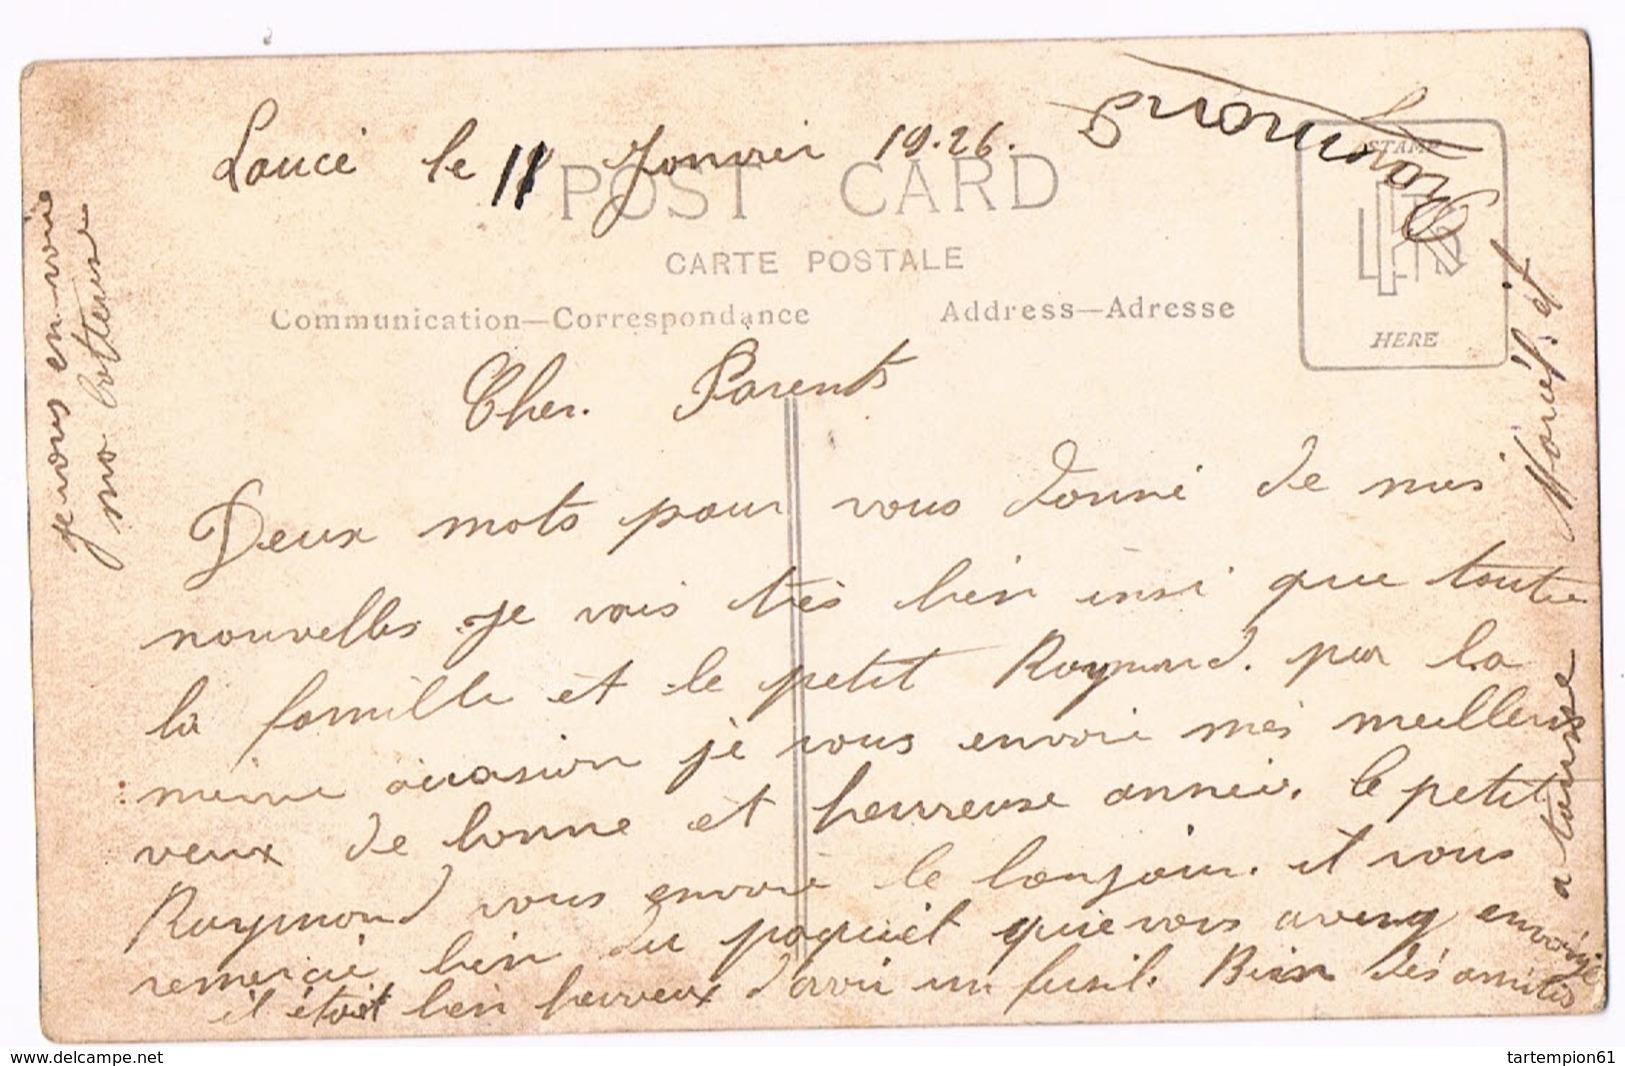 Laucé le 11 Janvier 19.26.
POST CARD
CARTE POSTALE
Communication—Correspondance
Address—Adresse
STAMP
HERE
Cher. Parents
Deux mots pour vous donné de mes
nouvelles. je vais très bien insi que toute
la famille et le petit Raymond. par la
meme occasion je vous envoie mes meillens
veux de bonne et heureuse année. le petit
Raymond vous envoie le bonjour. et vous
remercie bien du paquet que vous avez envoyé
il était bien heureux d'avoir un fusil. Bien dés amitiés
a tousse
Noël. et
je vous en-voie
ma
www.delcampe.net
tartempion61